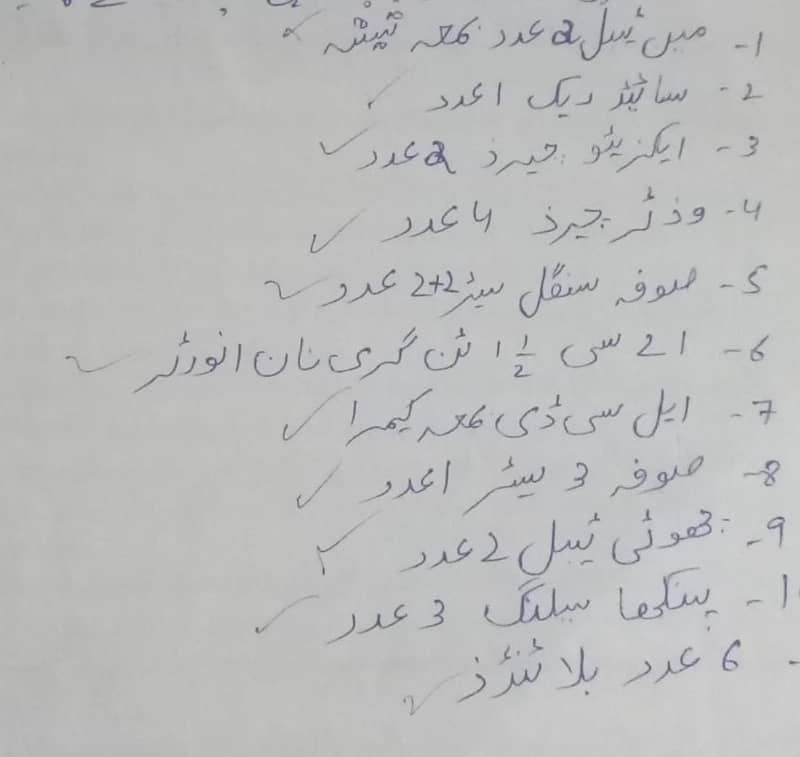 1- مین ٹیبل 2 عدد بمعہ شیشہ
2- سائیڈ ریک 1 عدد
3- ایگزیٹو چیرز 2 عدد
4- وزٹر چیرز 4 عدد
5- صوفہ سنگل سیٹر 2+2 عدد
6- اے سی 1 1/2 ٹن گری نان انورٹر
7- ایل سی ڈی بمعہ کیمرا
8- صوفہ 3 سیٹر 1 عدد
9- چھوٹی ٹیبل 2 عدد
1- پنکھا سیلنگ 3 عدد
- 6 عدد بلائنڈز